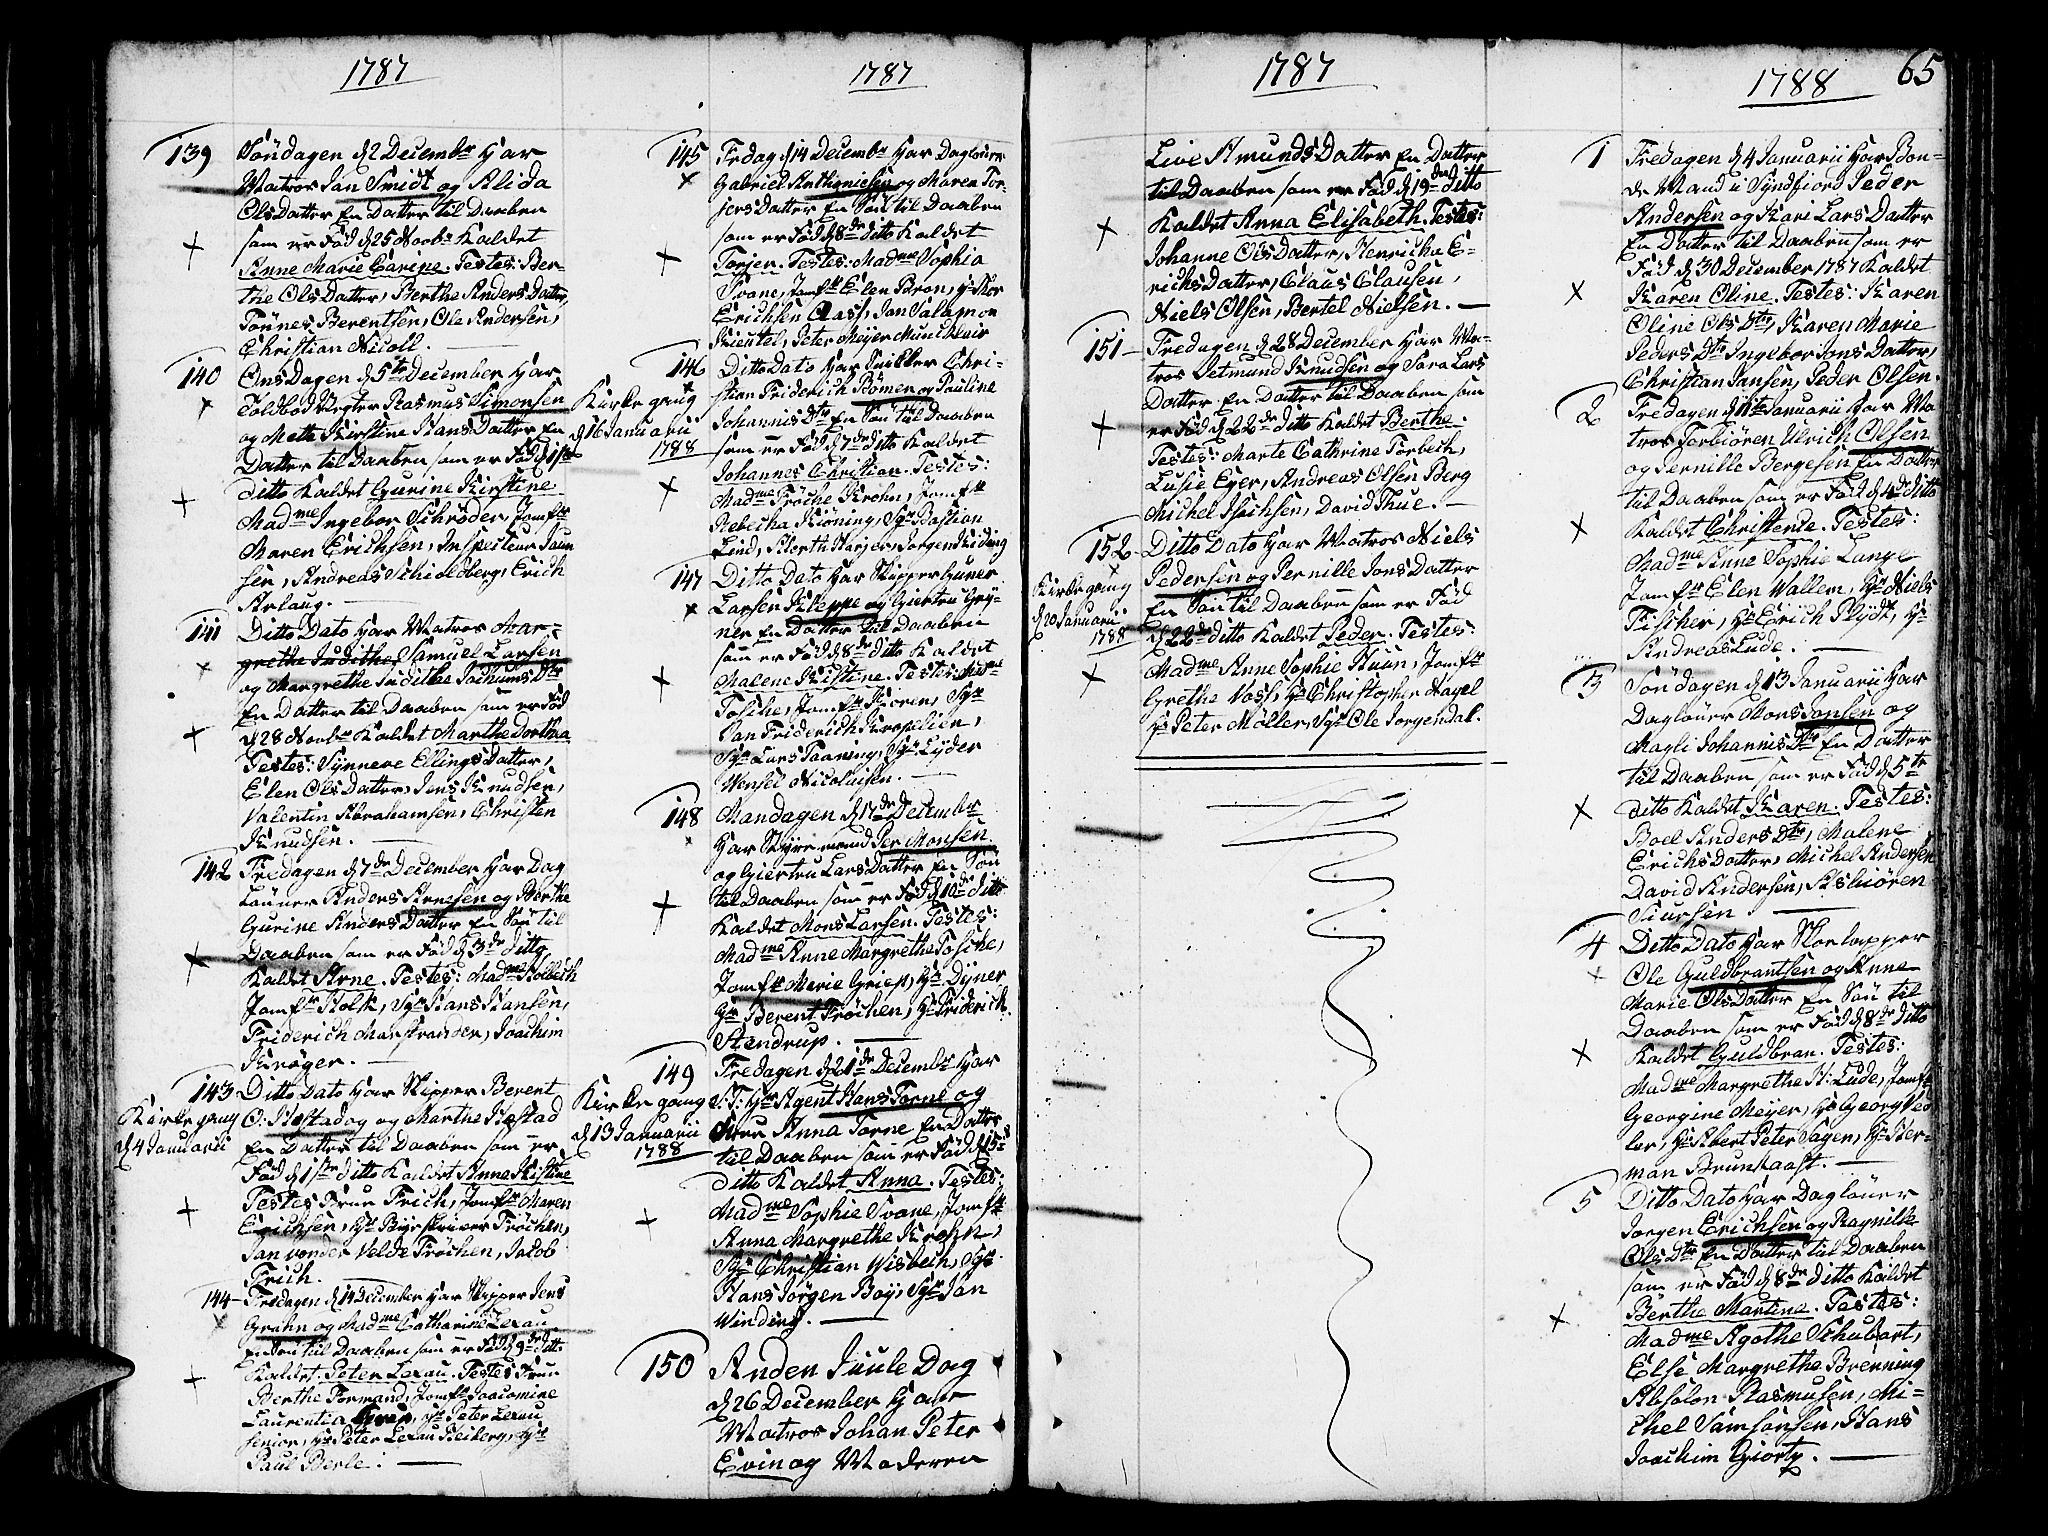 1787
139
Søndagen d 2 Decembr har
Matros Jan Smidt og Alida
Ols Datter En Datter til Daaben
som er Fød d 25 Novbr Kaldet
Anne Marie Carine. Testes: Ber-
the Ols Datter, Berthe Anders Datter,
Tønnes Berentsen, Ole Andersen,
Christian Nicoll.
140
Ons Dagen d 5te December har
Toldbod Vægter Rasmus Simonsen
og Mette Kirstine Hans Datter En
Datter til Daaben som er Fød d 1ste
ditto Kaldet Gurine Kirstine
Madme Ingebor Schrøder, Jomfr
Maren Erichsen, Inspecteur Jaun
sen, Andreas Schieldberg, Erich
Arlaug.
141
Ditto Dato har Matros Mar-
grethe Judithe, Samuel Larsen
og Margrethe Judithe Jochums Dtr
En Datter til Daaben som er Fød
d 28 Novbr Kaldet Marthe Dorthea
Testes: Synneve Ellings Datter,
Elen Ols Datter, Jens Knudsen,
Valentin Abrahamsen, Christen
Knudsen.
142
Fredagen d 7de December har Dag
Løuner Anders Arnesen og Berthe
Gurine Anders Datter En Søn til
Daaben som er Fød d 3de ditto
Kaldet Arne. Testes: Madme Holbeth
Jomfr Holk, Sgr Hans Hansen,
Friderich Marstrander, Joachim
Krøger.
143
Kirkegang
d 4 Januarii
Ditto Dato har Skipper Berent
O: Hestad og Marthe Hestad
En Datter til Daaben som er
Fød d 1ste ditto Kaldet Anne Kistine
Testes Frue Frich, Jomfr Maren
Erichsen, Hr Byeskriver Frøchen,
Jan vonder Velde Frøchen, Jacob
Frich.
144
Fredagen d 14 December har Skipper Jens
Grahn og Madme Catharine Lexau
En Søn til Daaben som er Fød d 9de ditto
Kaldet Peter Lexau. Testes Frue
Berthe Formand, Jomfr Joacomine
Laurentia, Hr Peter Lexau
senior, Hr Peter Lexau Heiberg, Hr
Paul Berle.
1787
145
Fredag d 14 Decembr har Dagløuner
Gabriel Anthoniesen og Maren Tor-
jers Datter En Søn til Daaben
som er Fød d 8de ditto Kaldet
Torjen. Testes: Madme Sophia
Svane, Jomfr Elen Baron, Hr Mor
Erichsen Aass, Jan Salamon
Kieutel, Peter Meyer Munchlair
146
Kirkegang
d 16 Januarii
1788
Ditto Dato har Snikker Chri-
stian Friderich Rømer og Pauline
Johannis Dtr En Søn til Daaben
som er Fød d 7de ditto Kaldet
Johannes Christian. Testes:
Madme Frøche Krohn, Jomfr
Rebecka Kiøning, Sgr Bastian
Lind, Alberth Harjer, Jørgen Kiding
147
Ditto Dato har Skipper Guner
Larsen Kleppe og Giertru Grÿ-
ner En Datter til Daaben
som er Fød d 8de ditto Kaldet
Malene Kistine. Testes: Madme
Fosche, Jomfr Kioren, Sgr
Jan Friderich Korneliën,
Sgr Lars Taaning, Sgr Lyder
Wensel Nicolaisen.
148
Mandagen d 17de December
har Styremand Per Monsen
og Giertru Lars Datter En Søn
til Daaben som er Fød d 10de ditto
Kaldet Mons Larsen. Testes:
Madme Anne Margrethe Fosche,
Jomfr Marie Griep, Hr Dyner
Hr Berent Frøchen, Hr Friderich
Standrup.
149
Kirkegang
d 13 Januarii
1788
Fredagen d 21de Decembr har
S.T: Hr Agent Hans Torne og
Frue Anna Torne En Datter
til Daaben som er Fød d 15de
ditto Kaldet Anna. Testes:
Madme Sophie Svane, Jomfr
Anna Margrethe Krohn,
Sgr Christian Wisbech, Sgr
Hans Jørgen Boy, Sgr Jan
Winding.
150
Anden Juule Dag
d 26 December har
Matros Johan Peter
Evin og Moderen
1787
Live Amunds Datter En Datter
til Daaben som er Fød d 19de ditto
Kaldet Anna Elisabeth. Testes:
Johanne Ols Datter, Henricha E-
richs Datter, Claus Clausen,
Niels Olsen, Bertel Nielsen.
151
Fredagen d 28 December har Ma-
tros Vetmund Knudsen og Sara Lars
Datter En Datter til Daaben som
er Fød d 22de ditto Kaldet Berthe.
Testes: Marte Cathrine Torbech,
Lusie Eyer, Andreas Olsen Berg
Michel Isachsen, David Thue.
152
Kirkegang
d 20 Januarii
1788
Ditto Dato har Matros Niels
Pedersen og Pernille Jons Datter
En Søn til Daaben som er Fød
d 22de ditto Kaldet Peder. Testes:
Madme Anne Sophie Huun, Jomfr
Grethe Voss, Hr Christopher Nagel
Hr Peter Møller, Sgr Ole Jorgendal.
1788
65
1
Fredagen d 4 Januarii har Bon-
de Mand i Syndfiord Peder
Andersen og Kari Lars Datter
En Datter til Daaben som er
Fød d 30 December 1787 Kaldet
Karen Oline. Testes: Karen
Oline Ols Dtr, Karen Marie
Peders Dtr Ingebor Jons Datter,
Christian Jansen, Peder Olsen.
2
Fredagen d 11te Januarii har Ma
tros Torbiören Ulrich Olsen
og Pernille Bergesen En Datter
til Daaben som er Fød d 4de ditto
Kaldet Christende. Testes:
Madme Anne Sophie Lange
Jomfr Elen Wallem, Hr Niels
Fischer, Hr Erich Plÿdt, Hr
Andreas Lude.
3
Søndagen d 13 Januarii har
Dagløuer Mons Jansen og
Magli Johannis Dtr En Datter
til Daaben som er Fød d 5te
ditto Kaldet Karen. Testes:
Boel Anders Dtr, Malene
Erichs Datter, Michel Andersen
David Andersen, Asbiören
Siursen.
4
Ditto Dato har Skoelapper
Ole Guldbrantsen og Anne
Marie Ols Datter En Søn til
Daaben som er Fød d 8de ditto
Kaldet Guldbran. Testes:
Madme Margrethe H: Lude, Jomfr
Georgine Meyer, Hr Georg Ved
ler, Hr Albert Peter Sagen, Hr Her-
man Brunstaast.
5
Ditto Dato har Dagløuer
Jorgen Erichsen og Ragnilde
Ols Dtr En Datter til Daaben
som er Fød d 8de ditto Kaldet
Berthe Martine. Testes:
Madme Agothe Schubart,
Else Margrethe Brenning
Absolon Rasmusen, Mi-
chel Samsonsen, Hans
Joachim Giørtz.